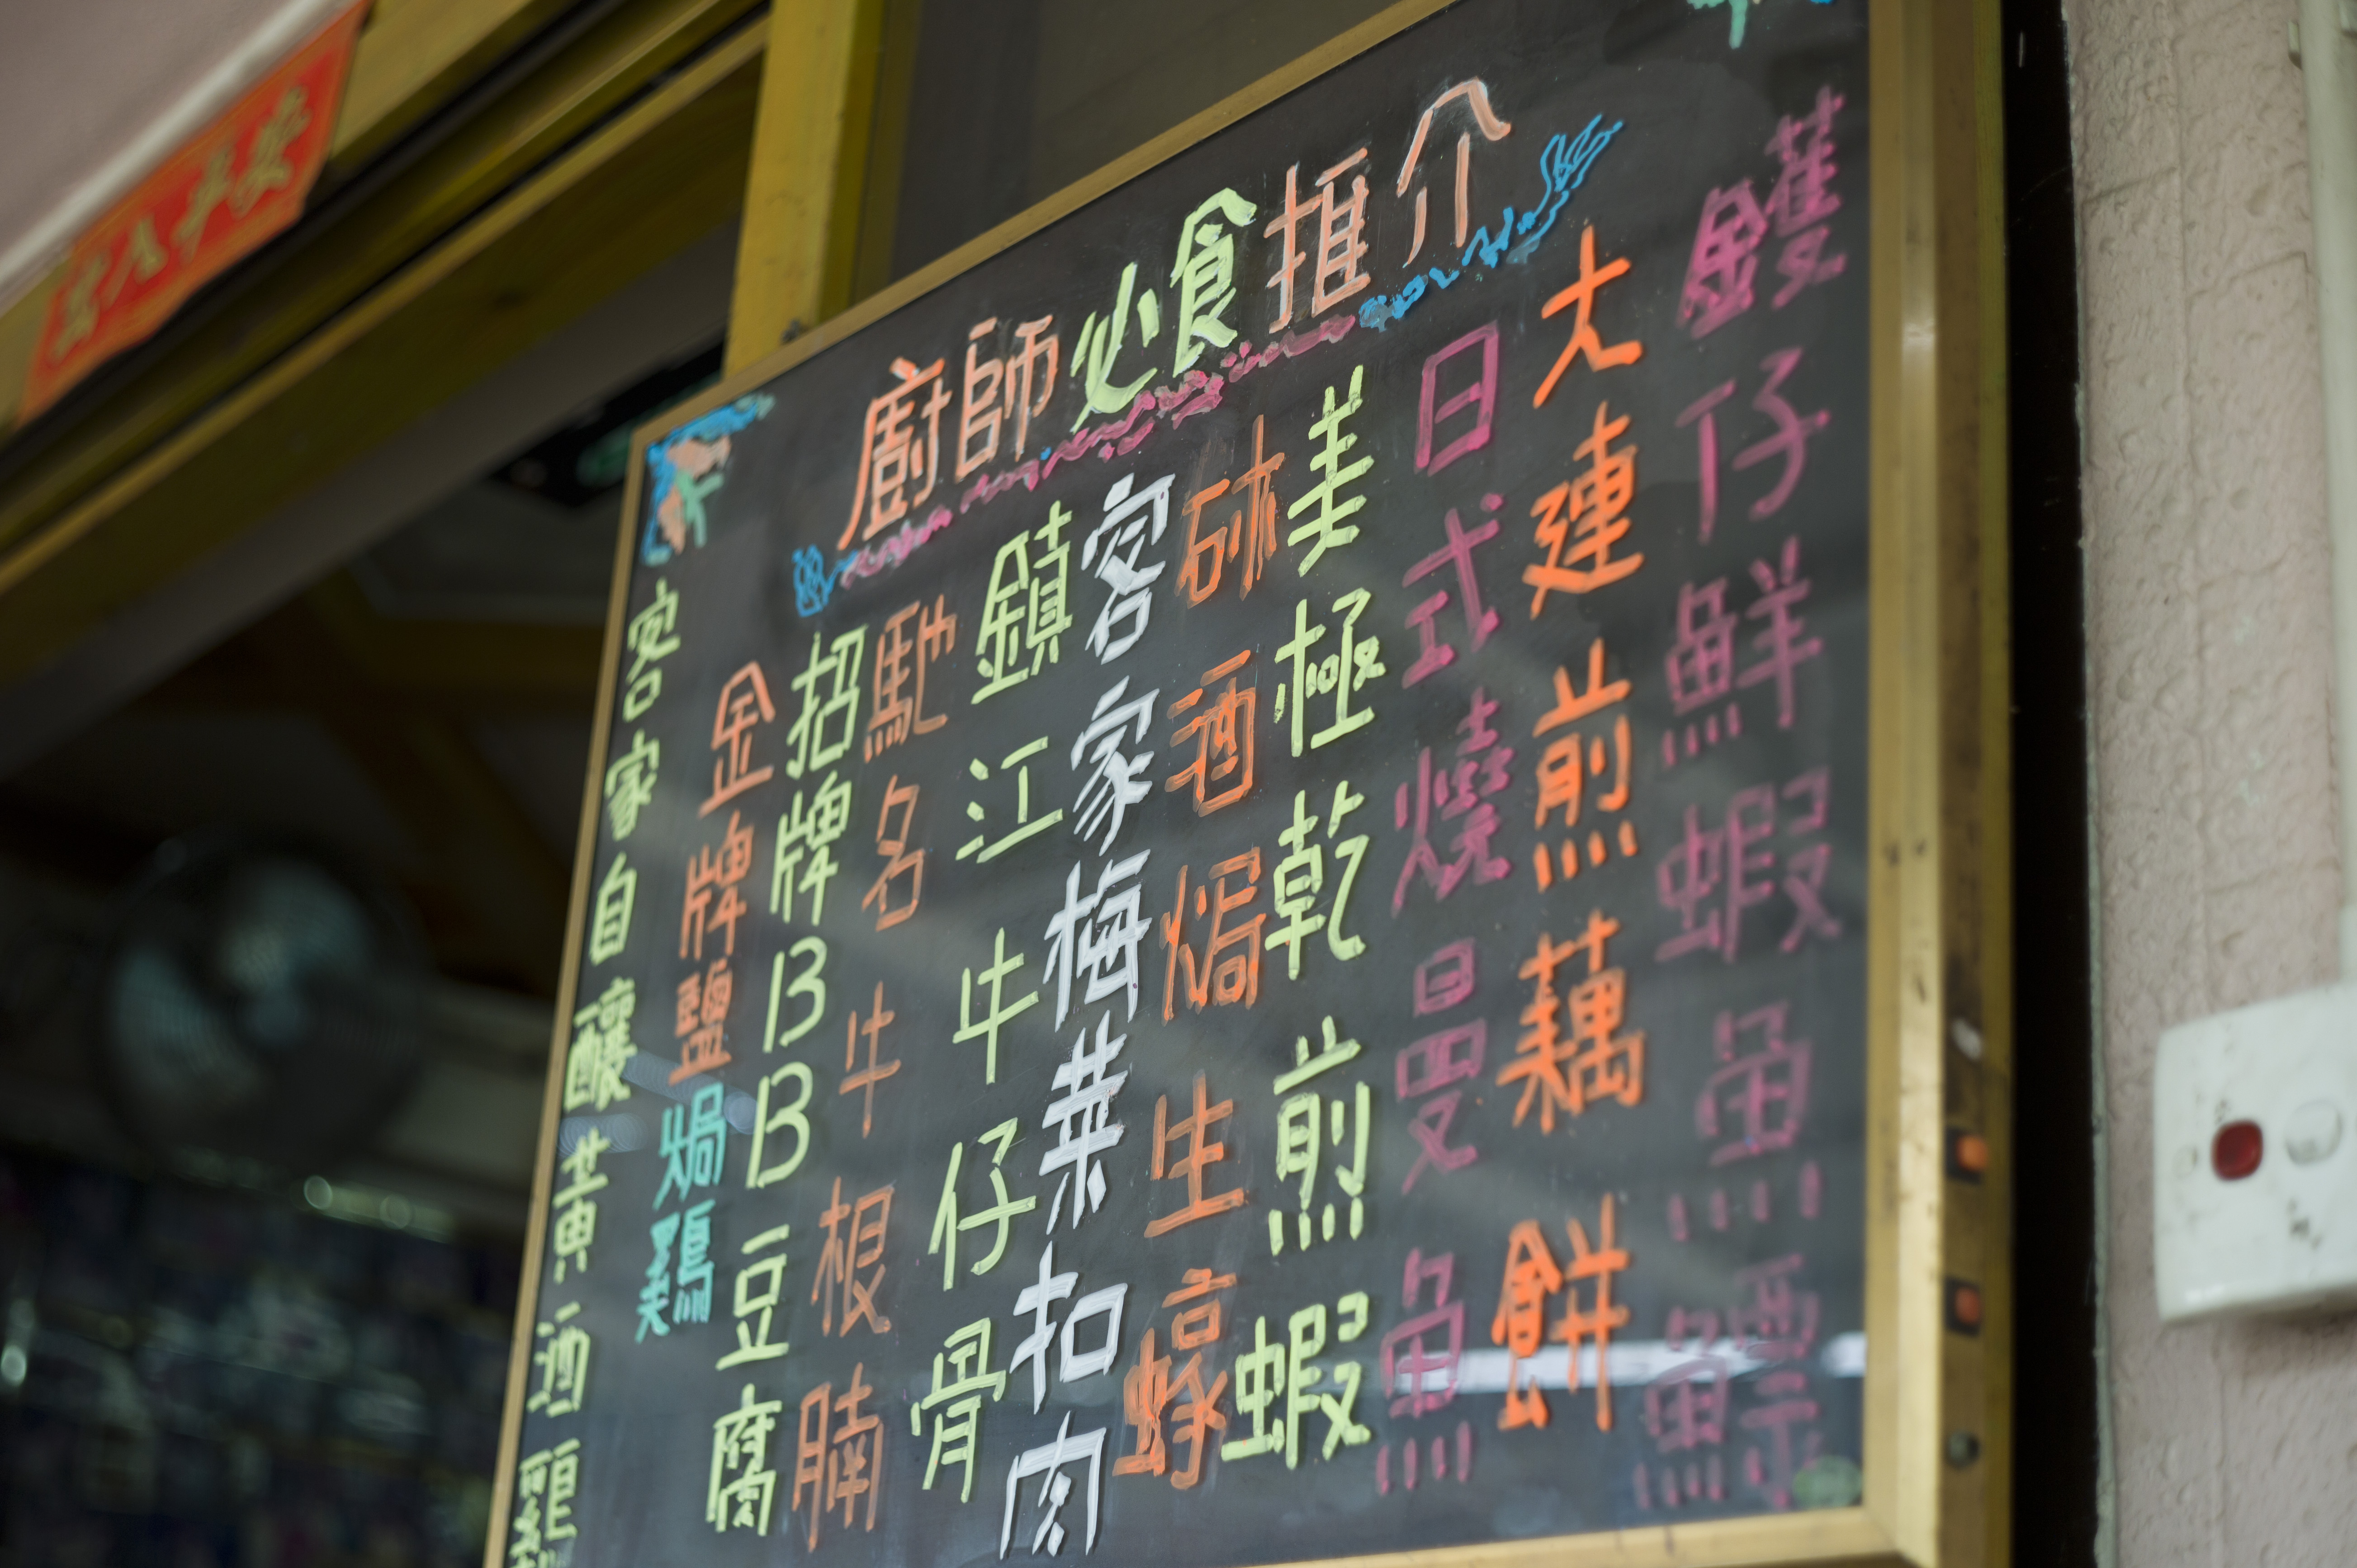 出入平安
廚師必食推介
鑊仔鮮蝦魚鰾
大連煎藕餅
日式燒曼魚
美極乾煎蝦
砵酒焗生蠔
客家梅菜扣肉
鎮江牛仔骨
馳名牛根腩
招牌BB豆腐
金牌鹽焗鷄
客家自釀黃酒雞